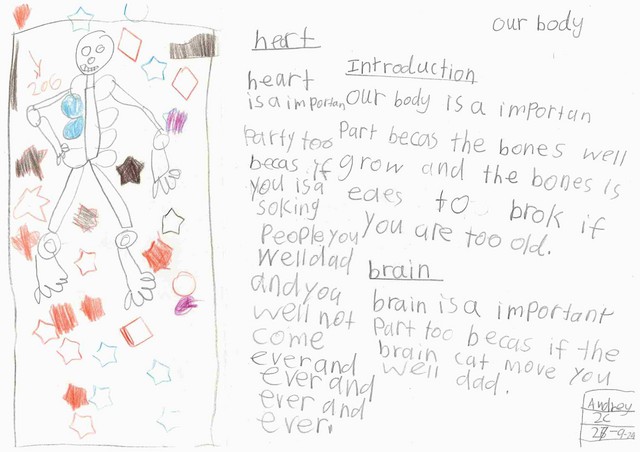 our body
206
hert
heart
is a importan
party too
becas if
you is a
soking
people, you
well dad
and you
well not
come
ever and
ever and
ever and
ever.
Introduction
our body is a importan
Part becas the bones well
grow and the bones is
eaes to brok if
you are too old.
brain
brain is a important
Part too becas if the
brain cat move you
well dad.
Andrey
2C